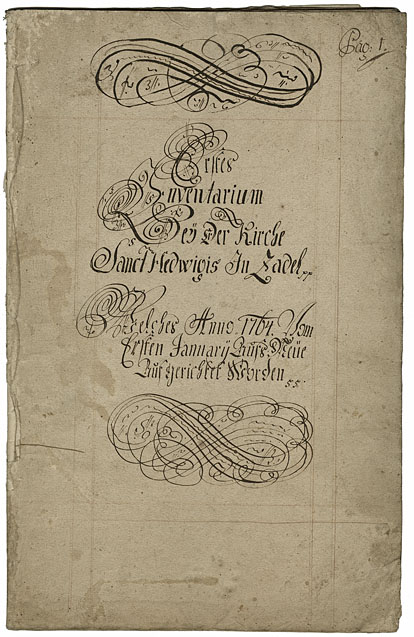 Pag: 1.
Erstes
Inventarium
Beÿ Der Kirche
Sanct Hedwigis In Zadel
Welches Anno 1764. Vom
Ersten Januarÿ Aufs Neüe
Auf gerichtet Worden